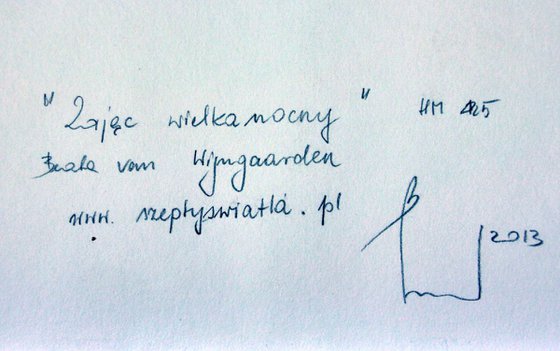 "Zając wielkanocny" HM 425
Beata van Wijngaarden
www. szeptyswiatla. pl
2013